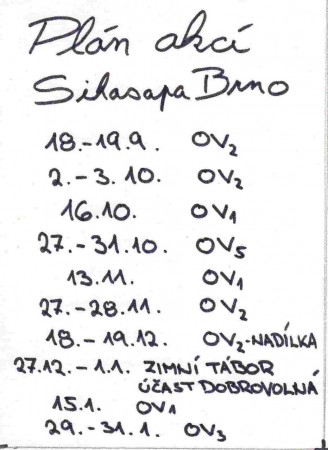 Plán akcí
Sihasapa Brno
18.-19.9. OV2
2.-3.10. OV2
16.10. OV1
27.-31.10. OV5
13.11. OV1
27.-28.11. OV2
18.-19.12. OV2-NADÍLKA
27.12.-1.1. ZIMNÍ TÁBOR
ÚČAST DOBROVOLNÁ
15.1. OV1
29.-31.1. OV3